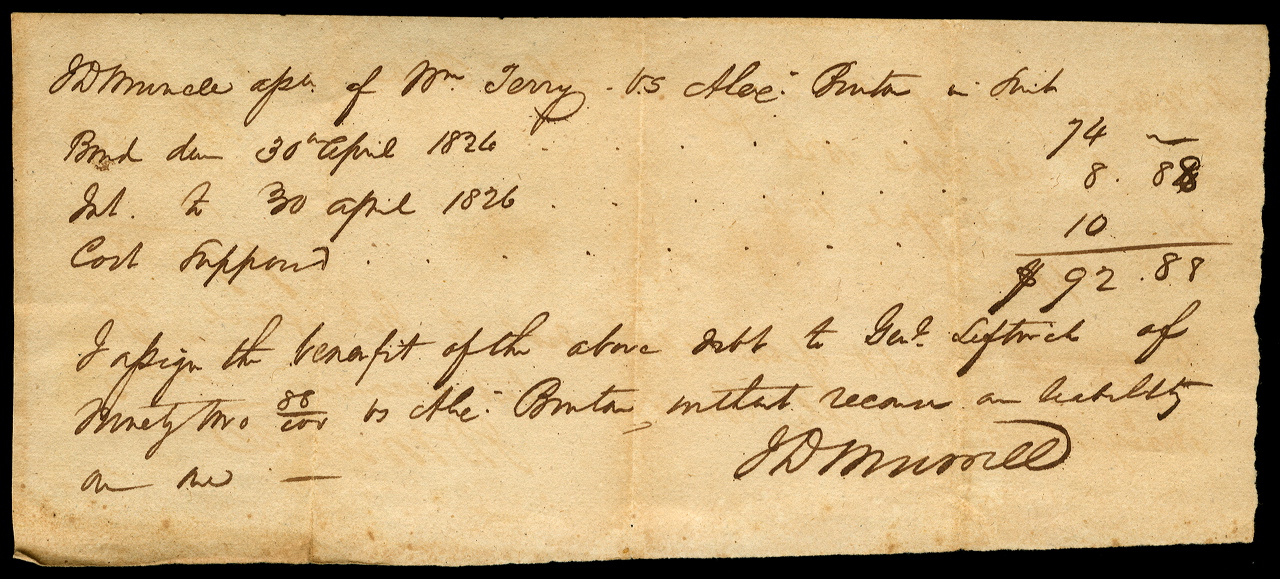 JD Murrell assn. of Wm Terry - VS Alexr. Bruton in Suit
Bond due 30th April 1826 . . . . . 74 —
Int. to 30 april 1826 . . . . . . 8. 88
Cost Supposed . . . . . . . 10
$ 92.88
I assign the benefit of the above debt to Genl. Leftwich of
Ninety two 88/100 vs Alexr. Bruton, without recourse or liability
on me —
JD Murrell